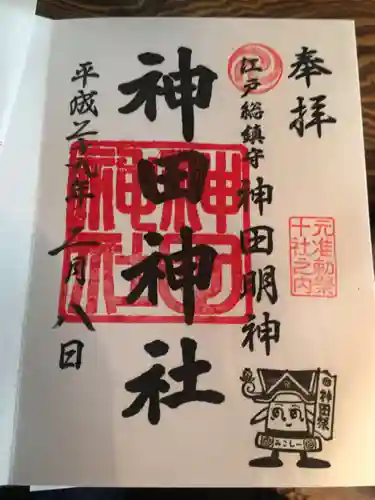 奉拝
元准勅祭
十社之内
江戸総鎮守 神田明神
神田神社
神田神社
平成二十九年 二月八日
神田祭
みこしー